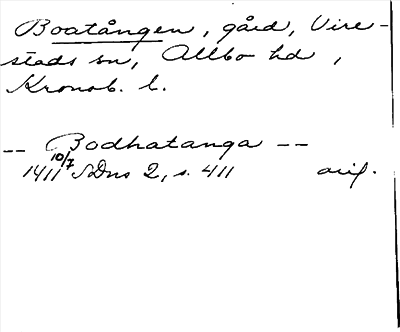 Boatången, gård, Vire-
stads sn, Allbo hd,
Kronob. l.
-- Bodhatanga --
1411 10/7 SDns 2, s. 411 orig.